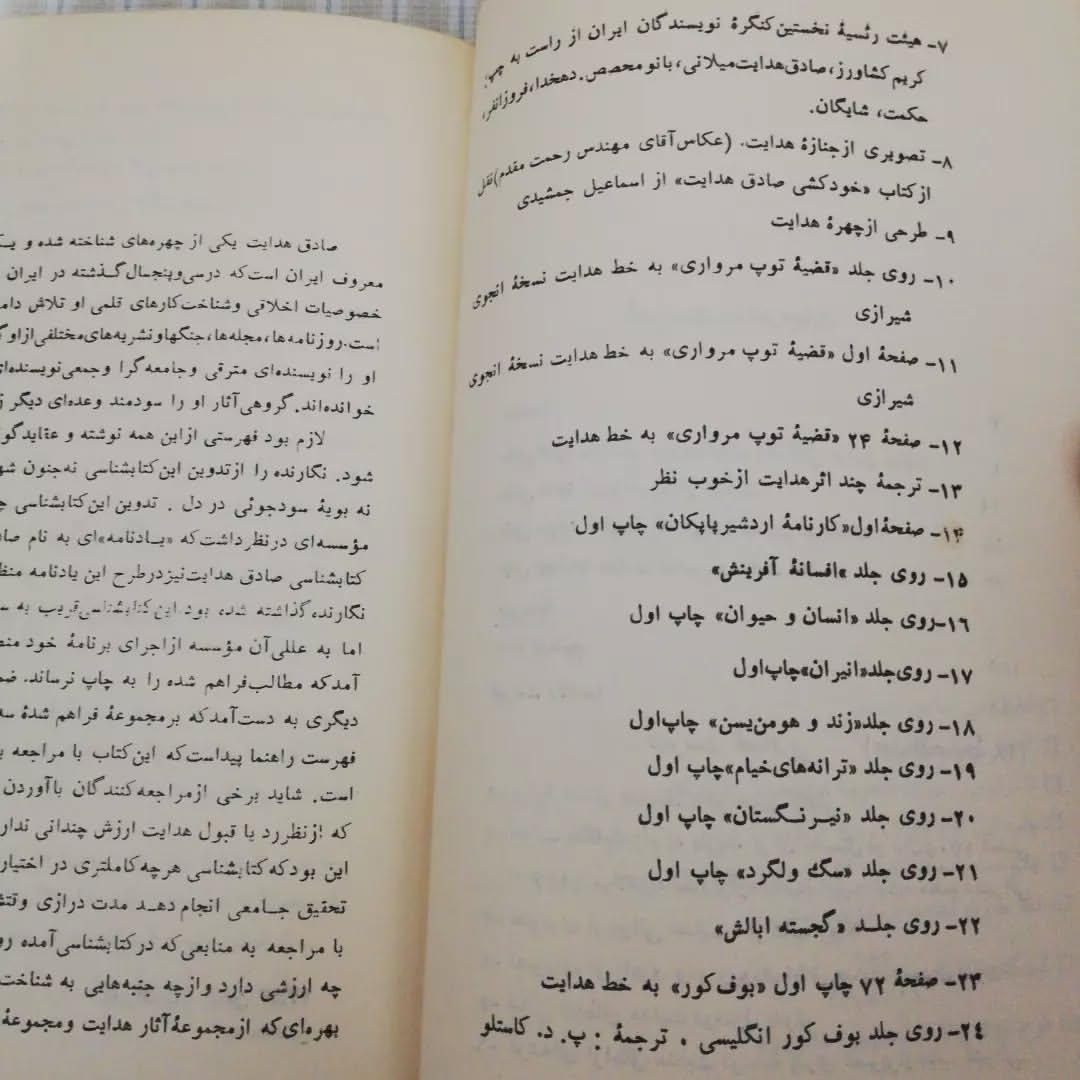 ۷- هیئت رئسیهٔ نخستین کنگرهٔ نویسندگان ایران از راست به چپ:
کریم کشاورز، صادق هدایت میلانی، بانو محصص. دهخدا، فروزانفر،
حکمت، شایگان.
۸- تصویری از جنازهٔ هدایت. (عکاس آقای مهندس رحمت مقدم) نقل
از کتاب «خودکشی صادق هدایت» از اسماعیل جمشیدی
۹- طرحی از چهرهٔ هدایت
۱۰- روی جلد «قضیهٔ توپ مرواری» به خط هدایت نسخهٔ انجوی
شیرازی
۱۱- صفحهٔ اول «قضیهٔ توپ مرواری» به خط هدایت نسخهٔ انجوی
شیرازی
۱۲- صفحهٔ ۲۴ «قضیهٔ توپ مرواری» به خط هدایت
۱۳- ترجمهٔ چند اثر هدایت از خوب نظر
۱۴- صفحهٔ اول «کارنامهٔ اردشیر پاپکان» چاپ اول
۱۵- روی جلد «افسانهٔ آفرینش»
۱۶- روی جلد «انسان و حیوان» چاپ اول
۱۷- روی جلد «انیران» چاپ اول
۱۸- روی جلد «زند و هومن یسن» چاپ اول
۱۹- روی جلد «ترانه‌های خیام» چاپ اول
۲۰- روی جلد «نیرنگستان» چاپ اول
۲۱- روی جلد «سگ ولگرد» چاپ اول
۲۲- روی جلد «گجسته ابالش»
۲۳- صفحهٔ ۷۲ چاپ اول «بوف کور» به خط هدایت
۲٤- روی جلد بوف کور انگلیسی. ترجمهٔ: پ. د. کاستلو
صادق هدایت یکی از چهره‌های شناخته شده و
معروف ایران است که در سی و پنجسال گذشته در ایران
خصوصیات اخلاقی و شناخت کارهای قلمی او تلاش
است. روزنامه‌ها، مجله‌ها، جنگها و نشریه‌های مختلفی از او
او را نویسنده‌ای مترقی و جامعه گرا و جمعی نویسنده‌ای
خوانده‌اند. گروهی آثار او را سودمند و عده‌ای دیگر
لازم بود فهرستی از این همه نوشته و عقاید
شود. نگارنده را از تدوین این کتابشناسی نه جنون
نه بویهٔ سودجوئی در دل. تدوین این کتابشناسی
مؤسسه‌ای در نظر داشت که «یادنامه»ای به نام
کتابشناسی صادق هدایت نیز در طرح این یادنامه
نگارنده گذاشته شده بود این کتابشناسی قریب به
اما به عللی آن مؤسسه از اجرای برنامهٔ خود
آمد که مطالب فراهم شده را به چاپ نرساند.
دیگری به دست آمد که بر مجموعهٔ فراهم شدهٔ
فهرست راهنما پیداست که این کتاب با مراجعه
است. شاید برخی از مراجعه کنندگان با آوردن
که از نظر رد یا قبول هدایت ارزش چندانی
این بود که کتابشناسی هرچه کاملتری در اختیار
تحقیق جامعی انجام دهد مدت درازی
با مراجعه به منابعی که در کتابشناسی آمده
چه ارزشی دارد و از چه جنبه‌هایی به شناخت
بهره‌ای که از مجموعهٔ آثار هدایت و مجموعهٔ